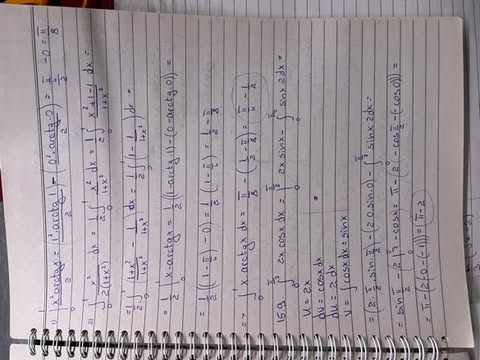 1) ∫₀¹ x² arctgx / 2 = (1². arctg 1 / 2) - (0². arctg. 0 / 2) = π/4 / 2 - 0 = π/8
2) ∫₀¹ x²/2(1+x²) dx = 1/2 ∫₀¹ x²/1+x² dx = 1/2 ∫₀¹ x²+1-1/1+x² dx =
= 1/2 ∫₀¹ (1+x²/1+x² - 1/1+x²) dx = 1/2 ∫₀¹ (1 - 1/1+x²) dx =
= 1/2 |₀¹ x - arctgx = 1/2 ((1-arctg.1) - (0-arctg.0)) =
= 1/2 ((1-π/4) - 0) = 1/2 (1-π/4) = 1/2 - π/8
=> ∫₀¹ x. arctgx dx = π/8 - (1/2 - π/8) = π/4 - 1/2
15.9. ∫₀^π/2 2x cosx dx = |₀^π/2 2x sinx - ∫₀^π/2 sinx 2dx =
u = 2x
dv = cosx dx
du = 2 dx
v = ∫cosx dx = sinx
= (2. π/2. sin. π/2) - (2.0. sin. 0) - ∫₀^π/2 sinx 2dx =
= sin π/2 - (2 |₀^π/2 - cosx = π - (2 (-cos π/2 - (-cos0)) =
= π - (2(-0-(-1))) = π-2